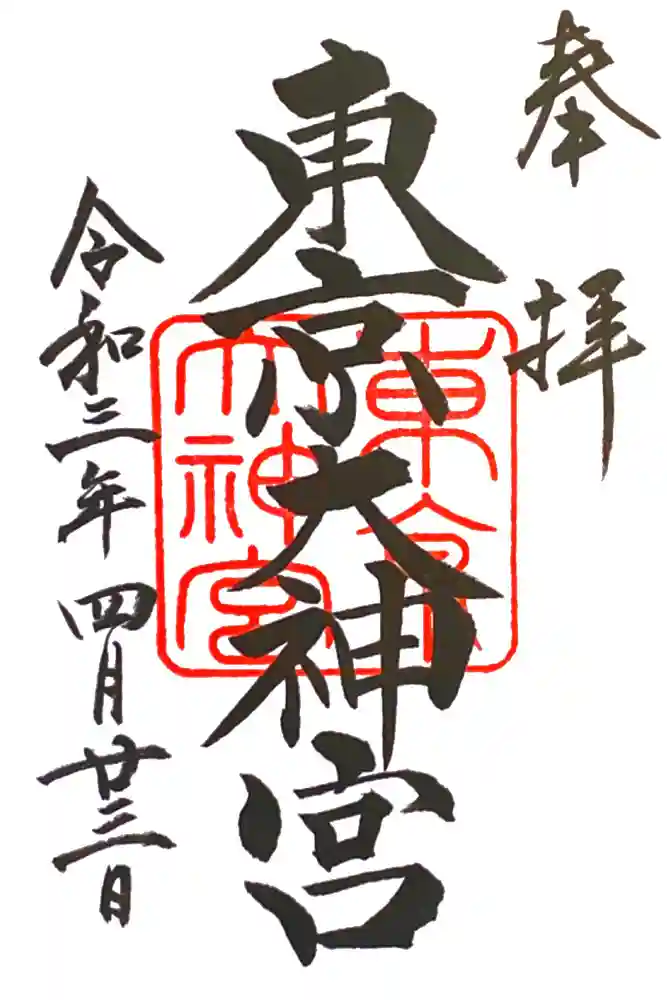 奉拝
東京大神宮
東京
大神宮
令和三年四月廿三日